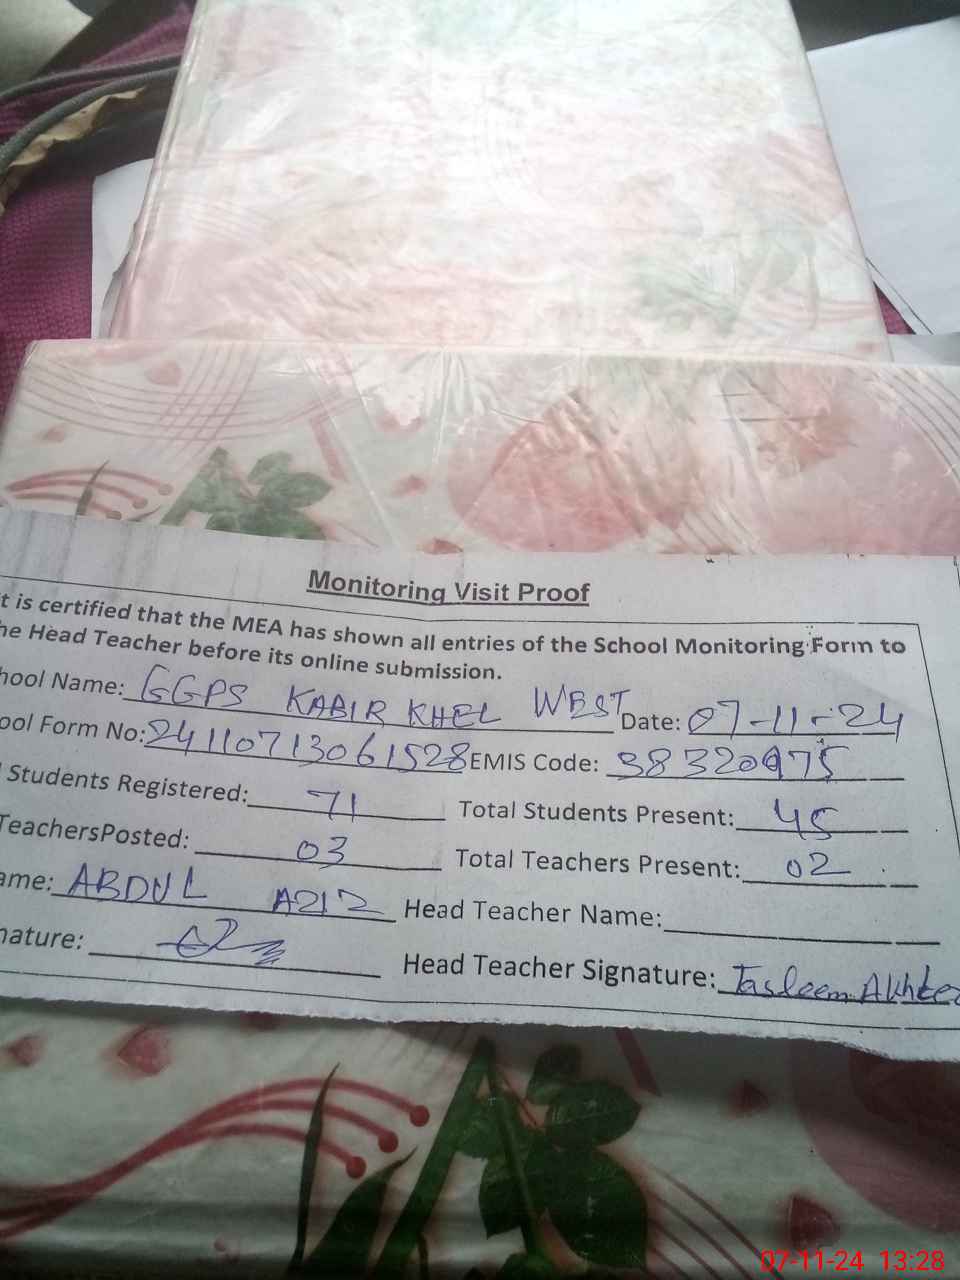 Monitoring Visit Proof
t is certified that the MEA has shown all entries of the School Monitoring Form to
he Head Teacher before its online submission.
hool Name: GGPS KABIR KHEL WEST Date: 07-11-24
ool Form No: 24110713061528 EMIS Code: 38320975
l Students Registered: 71 Total Students Present: 45
TeachersPosted: 03 Total Teachers Present: 02
ame: ABDUL AZIZ Head Teacher Name:
nature: Head Teacher Signature: Tasleem Akhter
07-11-24 13:28